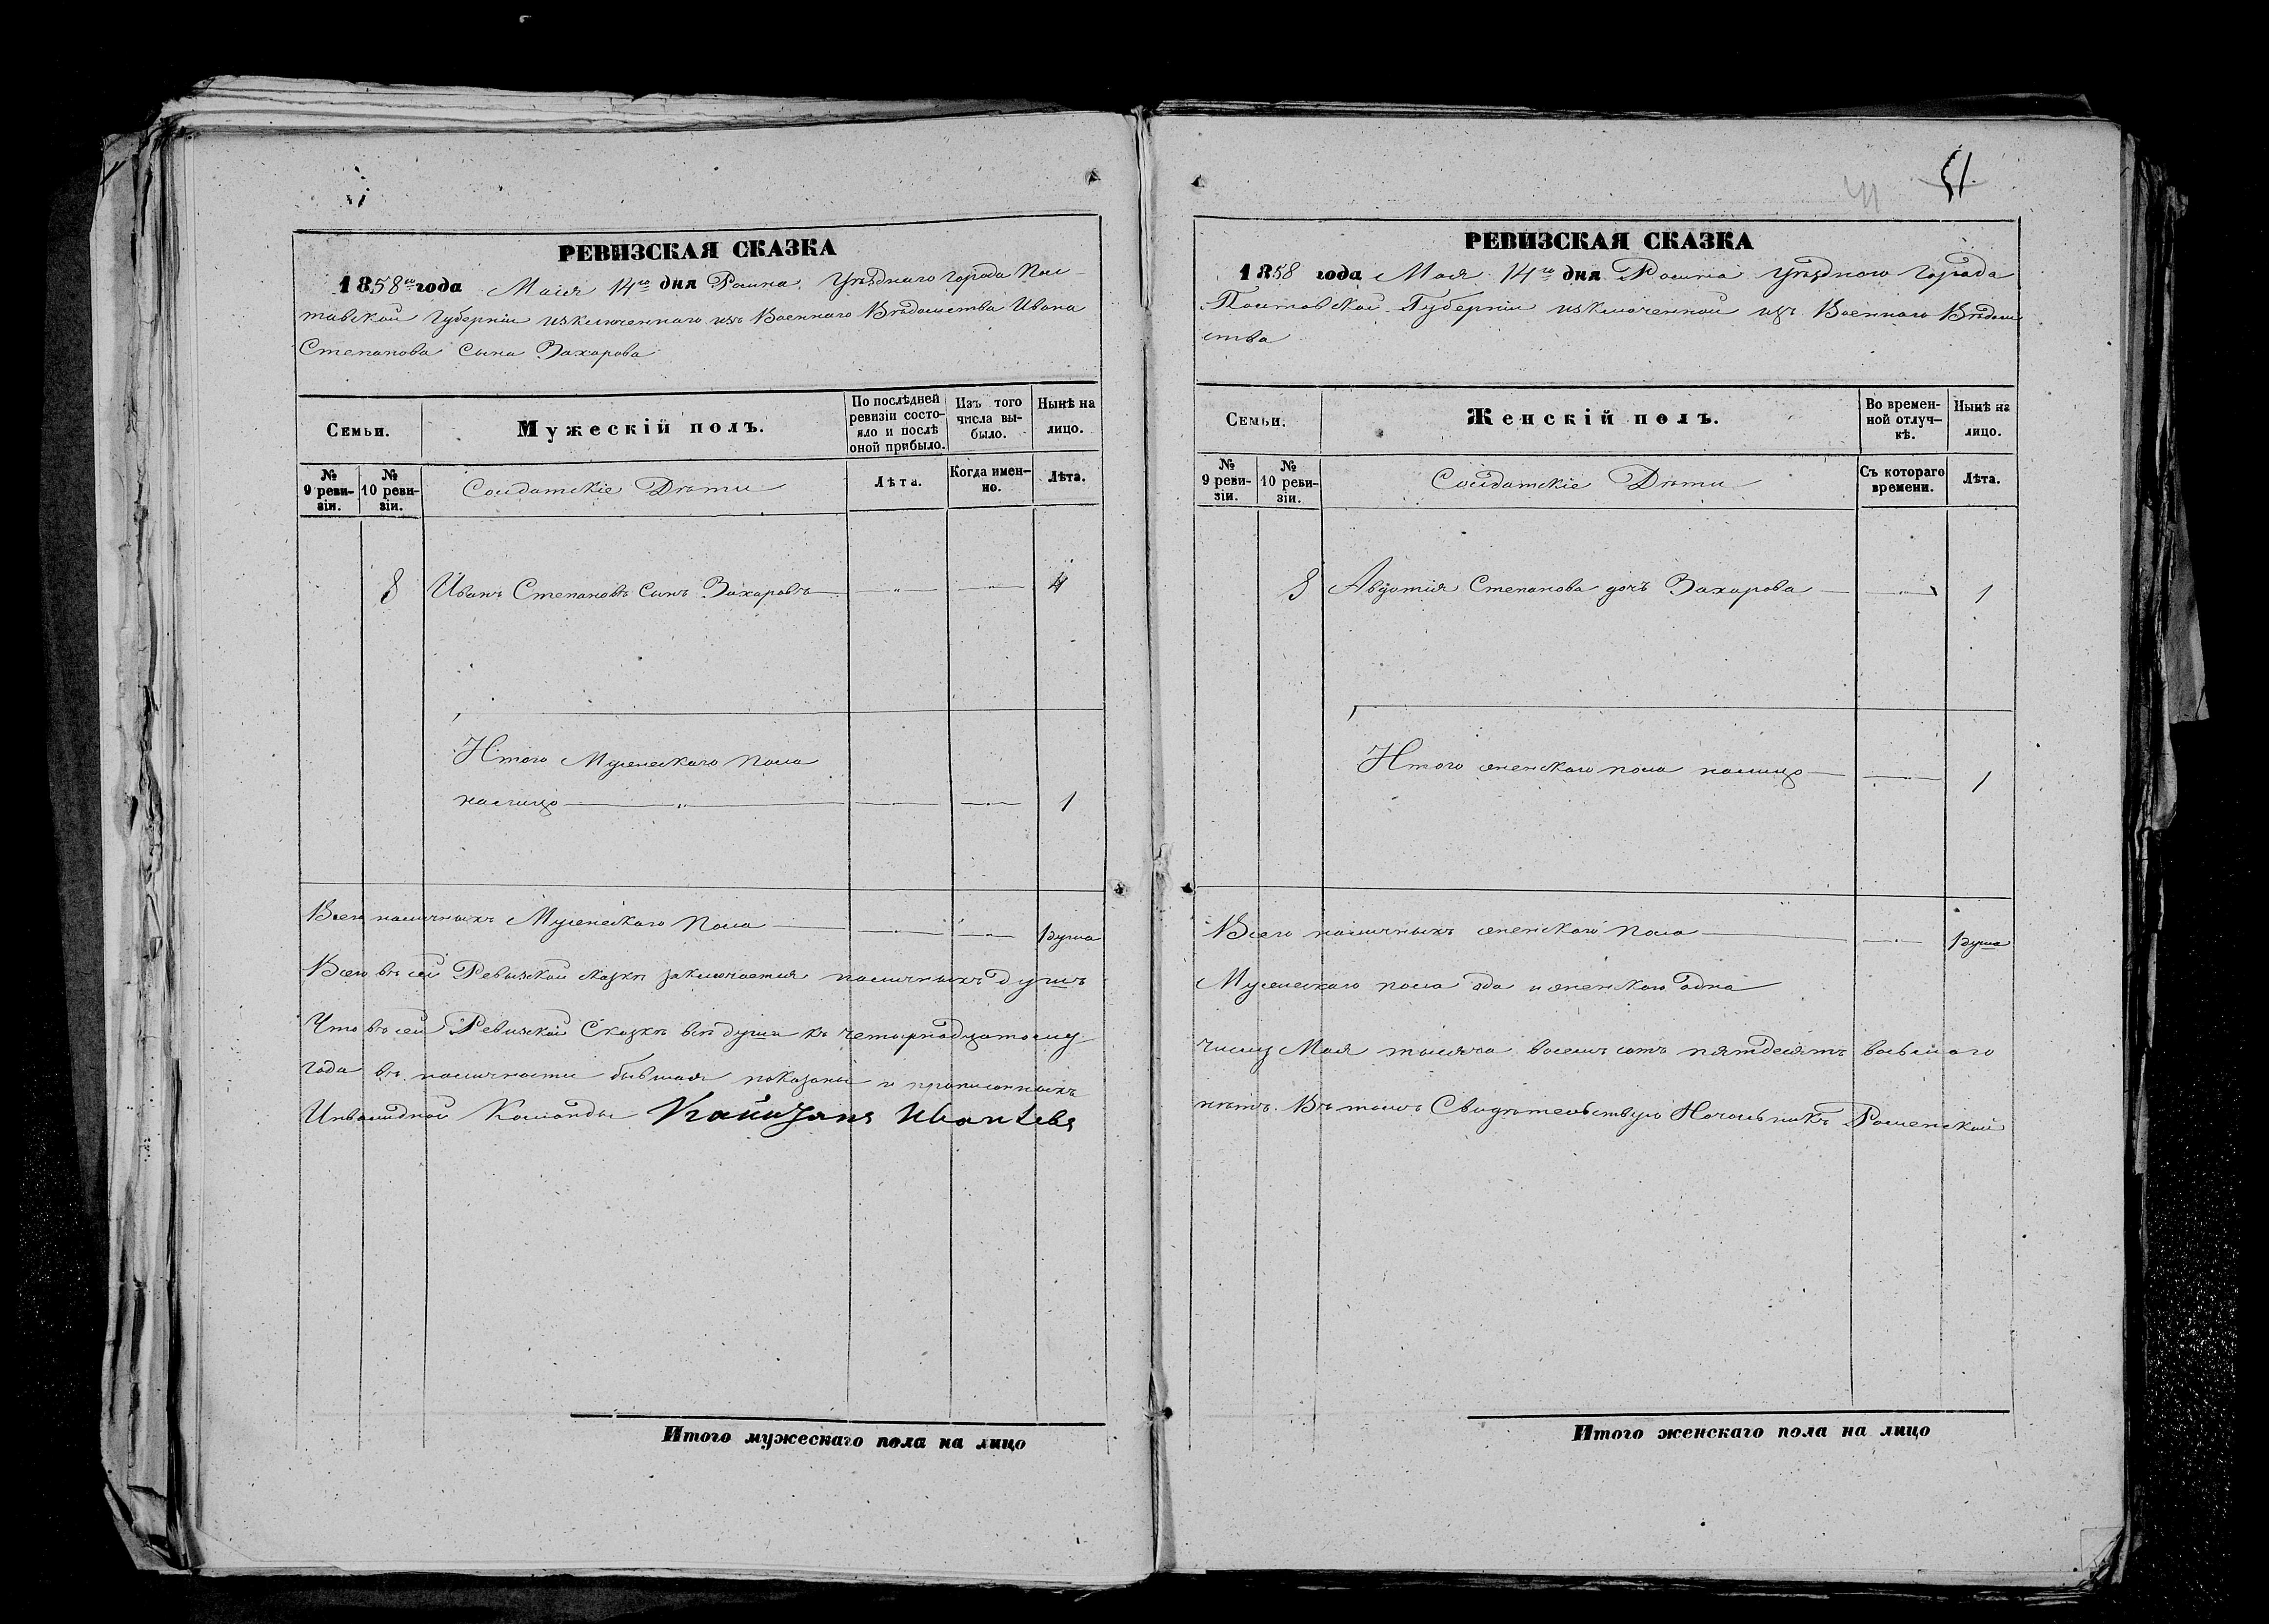 РЕВИЗСКАЯ СКАЗКА
1858го года Маія 14го дня Ромна Уѣзднаго Города Пол-
тавской Губерніи изключеннаго изъ Военнаго Вѣдомства Ивана
Степанова Сына Захарова
Семьи.
Мужескій полъ.
По послѣдней ревизіи состо-яло и послѣ оной прибыло.
Изъ того числа вы-было.
Нынѣ на лицо.
№ 9 реви-зіи.
№ 10 реви-зіи.
Солдатскіе Дѣти
Лѣта.
Когда имен-но.
Лѣта.
8 Иванъ Степановъ Сынъ Захаровъ
Итого Мужескаго Пола
налицо 1
Всего наличныхъ Мужескаго Пола 1 душа
Всего въ сей Ревизской сказкѣ заключается наличныхъ душъ
Что въ сей Ревизской Сказкѣ всѣ души къ четырнадцатому
года въ наличности бывшая показаны и прописанныхъ
Инвалидной Команды
Итого мужескаго пола на лицо
51
41
РЕВИЗСКАЯ СКАЗКА
1858 года Мая 14го дня Ромна Уѣзднаго Города
Полтавской Губерніи изключенной изъ Военнаго Вѣдом
ства
Семьи.
Женскій полъ.
Во времен-ной отлуч-кѣ.
Нынѣ на лицо.
№ 9 реви-зіи.
№ 10 реви-зіи.
Солдатскіе Дѣти
Съ котораго времени.
Лѣта.
8 Авдотія Степанова дочь Захарова 1
Итого женскаго пола налицо 1
Всего наличныхъ женскаго пола 1 душа
Мужескаго пола одна и женскаго одна
числу Мая тысяча восемь сотъ пятдесятъ восьмаго
нѣтъ. Въ томъ Свидѣтельствую Начальникъ Роменской
Итого женскаго пола на лицо